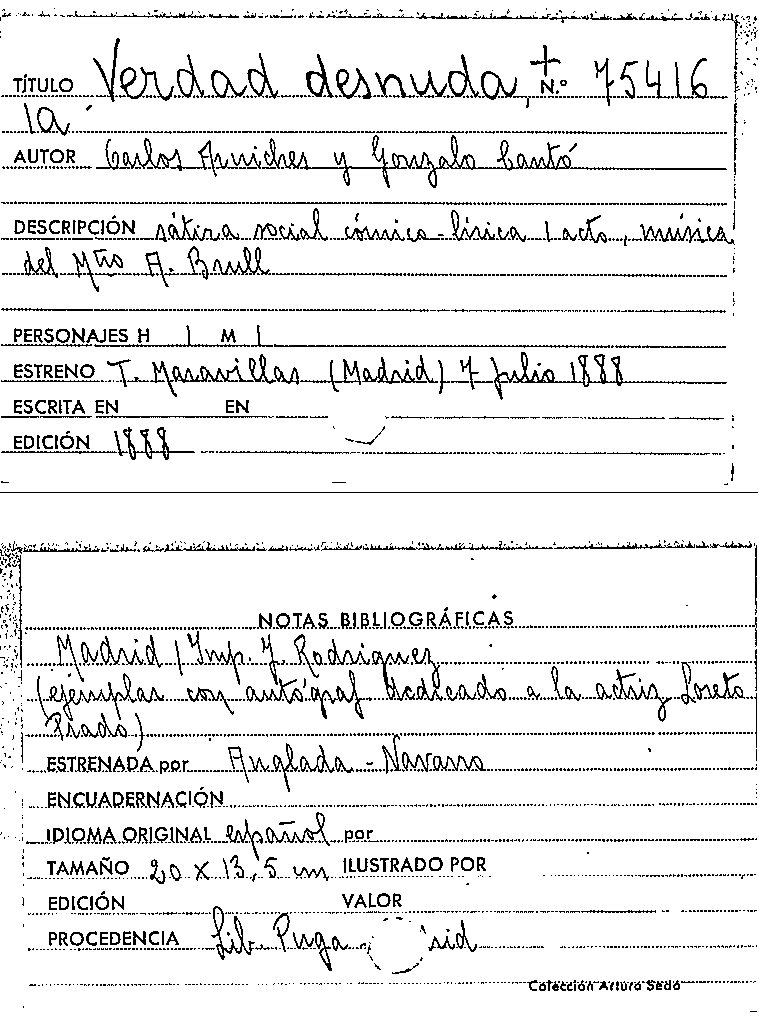 TÍTULO Verdad desnuda, + N.º 75416
la
AUTOR Carlos Arniches y Gonzalo Cantó
DESCRIPCIÓN sátira social cómico-lírica 1 acto, música
del Mtro A. Brull
PERSONAJES H | M |
ESTRENO T. Maravillas (Madrid) 7 Julio 1888
ESCRITA EN EN
EDICIÓN 1888
NOTAS BIBLIOGRÁFICAS
Madrid / Imp. J. Rodriguez
(ejemplar con autógraf dedicado a la actriz Loreto
Prado)
ESTRENADA por Anglada - Navarro
ENCUADERNACIÓN
IDIOMA ORIGINAL español por
TAMAÑO 20 x 13,5 cm ILUSTRADO POR
EDICIÓN VALOR
PROCEDENCIA Lib. Puga
Colección Arturo Sedó